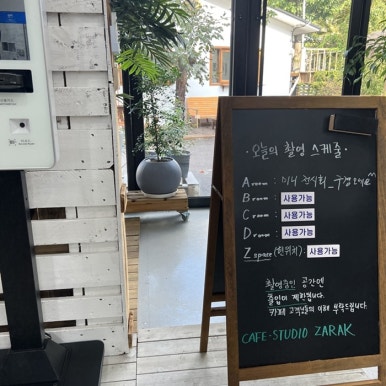 · 오늘의 촬영 스케줄 ·
A room : 미니 전시회_구경오세요^^
B room : 사용가능
C room : 사용가능
D room : 사용가능
Z space (원위치) : 사용가능
촬영중인 공간엔
출입이 제한됩니다.
카페 고객님들의 이해 부탁드립니다.
CAFE-STUDIO ZARAK